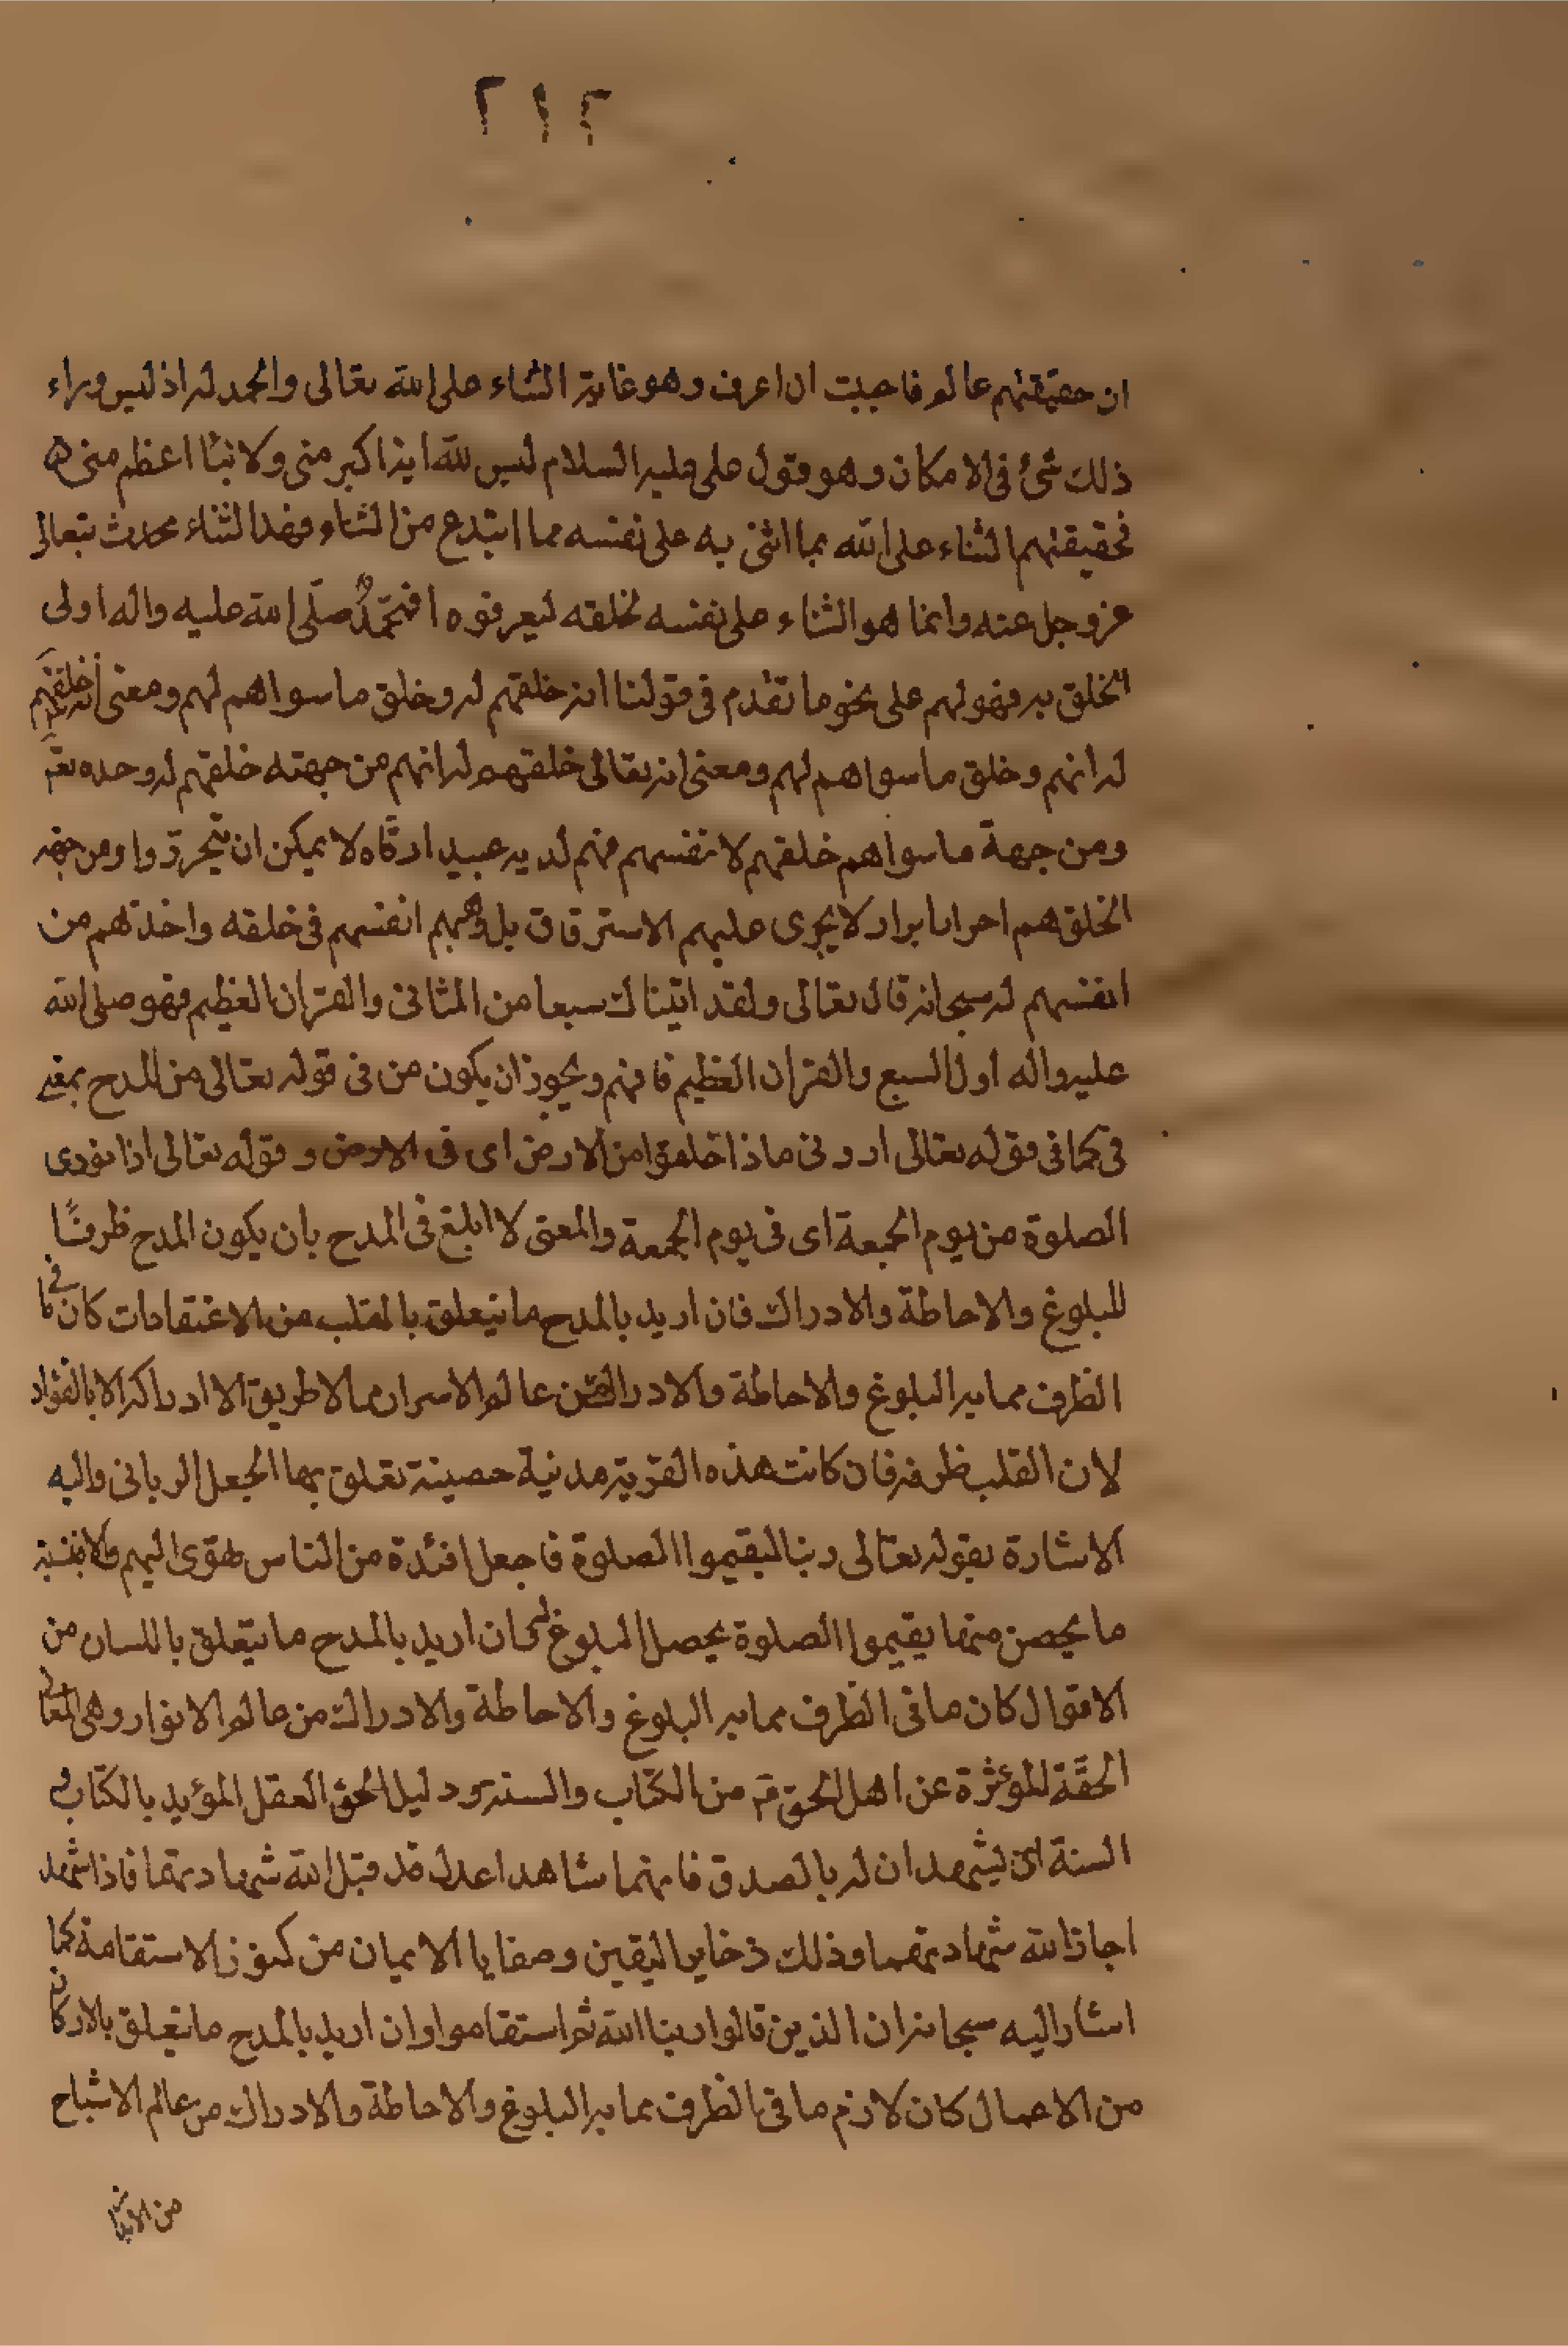 ٢١٢
ان حقيقتهم عالم فاحببت ان اعرف وهو غاية الثناء على الله تعالى والحمد له اذ ليس وراء
ذلك شئ فى الامكان وهو قول على عليه السلام ليس لله اية اكبر منى ولا نبأ اعظم منى ه
فحقيقتهم الثناء على الله بما اثنى به على نفسه مما ابتدع من الثناء وهذا الثناء محدث يتعالى
عز وجل عنه وانما هو الثناء على نفسه لخلقه ليعرفوه ا فمحمد صلى الله عليه واله اولى
الخلق به فهو لهم على نحو ما تقدم فى قولنا انه خلقهم له وخلق ما سواهم لهم ومعنى انه خلقهم
له انهم وخلق ما سواهم لهم ومعنى انه تعالى خلقهم له انهم من جهته خلقهم له وحده
ومن جهة ما سواهم خلقهم لانفسهم فهم لديه عبيد ارقاء لا يمكن ان يتحرروا ومن جهة
الخلق هم احرار ابرار لا يجرى عليهم الاسترقاق بل وهبهم انفسهم فى خلقه واخذهم من
انفسهم له سبحانه قال تعالى ولقد اتيناك سبعا من المثانى والقران العظيم فهو صلى الله
عليه واله اول السبع والقران العظيم فافهم ويجوز ان يكون من فى قوله تعالى من المدح بمعنى
فى كما فى قوله تعالى ارونى ماذا خلقوا من الارض اى فى الارض وقوله تعالى اذا نودى
الصلوة من يوم الجمعة اى فى يوم الجمعة والمعنى لا ابلغ فى المدح بان يكون المدح ظرفًا
للبلوغ والاحاطة والادراك فان اريد بالمدح ما يتعلق بالقلب من الاعتقادات كان ما فى
الظرف مما به البلوغ والاحاطة والادراك من عالم الاسرار مما لا طريق الا ادراكه الا بالفؤاد
لان القلب ظرفه فان كانت هذه القرية مدنية حصينة تعلق بها الجعل الربانى واليه
الاشارة بقوله تعالى ربنا ليقيموا الصلوة فاجعل افئدة من الناس تهوى اليهم والا فنسبة
ما يحصن منها يقيموا الصلوة يحصل البلوغ ان اريد بالمدح ما يتعلق باللسان من
الاقوال كان ما فى الظرف مما به البلوغ والاحاطة والادراك من عالم الانوار وهى المعانى
الحقة المؤثرة عن اهل الحق من الكتاب والسنة ودليل الحق العقل المؤيد بالكتاب و
السنة يشهدان له بالصدق فانهما شاهدا عدل قد قبل الله شهادتهما فاذا شهد
اجاز الله شهادتهما وذلك ذخاير اليقين وصفايا الايمان من كنوز الاستقامة كما
اشار اليه سبحانه ان الذين قالوا ربنا الله ثم استقاموا وان اريد بالمدح ما تعلق بالاركان
من الاعمال كان لازم ما فى الظرف مما به البلوغ والاحاطة والادراك من عالم الاشباح